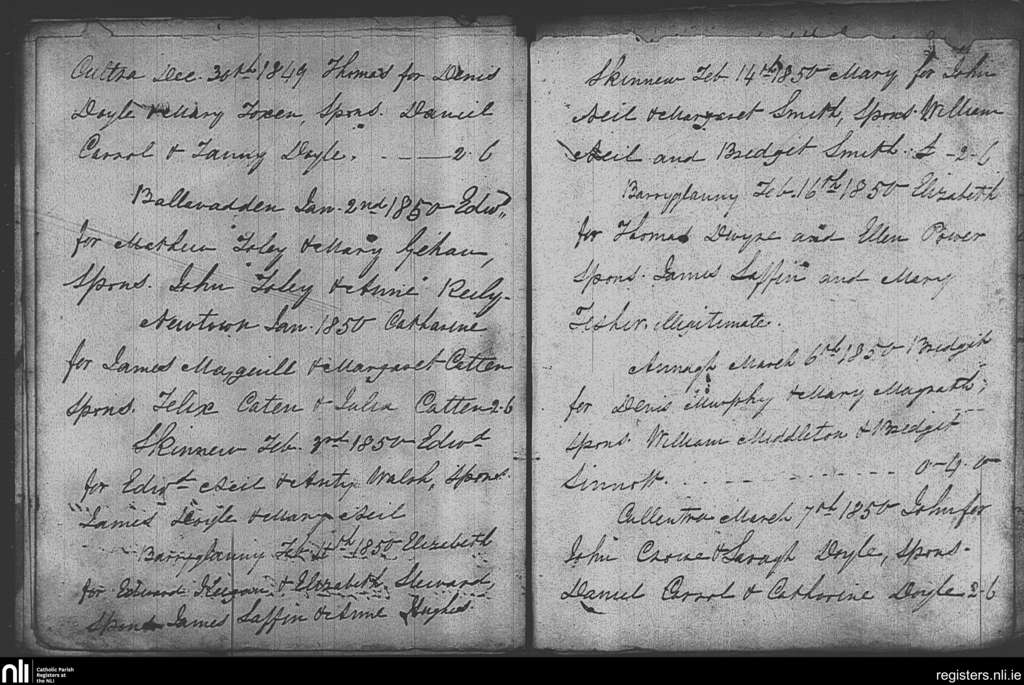 Cultra Dec. 30th 1849 Thomas for Denis
Doyle & Mary Foxen, Spons. Daniel
Carrol & Fanny Doyle. - - - 2-6
Ballavadden Jan. 2nd 1850 Edwd
for Mathew Foley & Mary Gehan,
Spons. John Foley & Anne Reily.
Newtown Jan. 1850 Catharine
for James Maguill & Margaret Catten
Spons. Felix Caten & Julia Catten 2-6
Skinnew Feb. 3rd 1850 Edwd
for Edwd Neil & Anty Walsh, Spons.
James Doyle & Mary Neil
Barryglanny Feb 4th 1850 Elizabeth
for Edward & Elizabeth Steward,
Spons James Laffin & Anne Hughes
Skinnew Feb 14th 1850 Mary for John
Neil & Margaret Smith, Spons William
Neil and Bredgit Smith. - 2-6
Barryglanny Feb. 16th 1850 Elizabeth
for Thomas Dwyre and Ellen Power
Spons. James Laffin and Mary
Fisher, illegitimate.
Annagh March 6th 1850 Bredgit
for Denis Murphy & Mary Magrath;
Spons. William Middleton & Bredgit
Sinnott. - - - - - - - 0-4-0
Cullentra March 7th 1850 John for
John Crowe & Saragh Doyle, Spons-
Daniel Carrol & Catharine Doyle 2-6
nli
Catholic Parish
Registers at
the NLI
registers.nli.ie